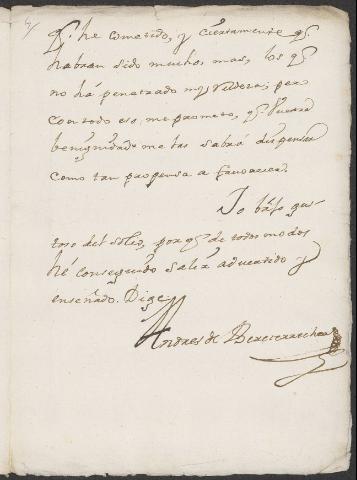 q.e he cometido, y ciertamente q.e
habran sido muchos mas, los q.e
no há penetrado mi rudeza; pero
con todo eso me prometo, q.e vuestra
benignidad me las sabrá dispensar
como tan propensa a favorecer.
Yo báfo gus-
toso del Solio, porq.e de todos modos
hé conseguido salir advertido y
enseñado. Dige
Andres de Berezerrechea